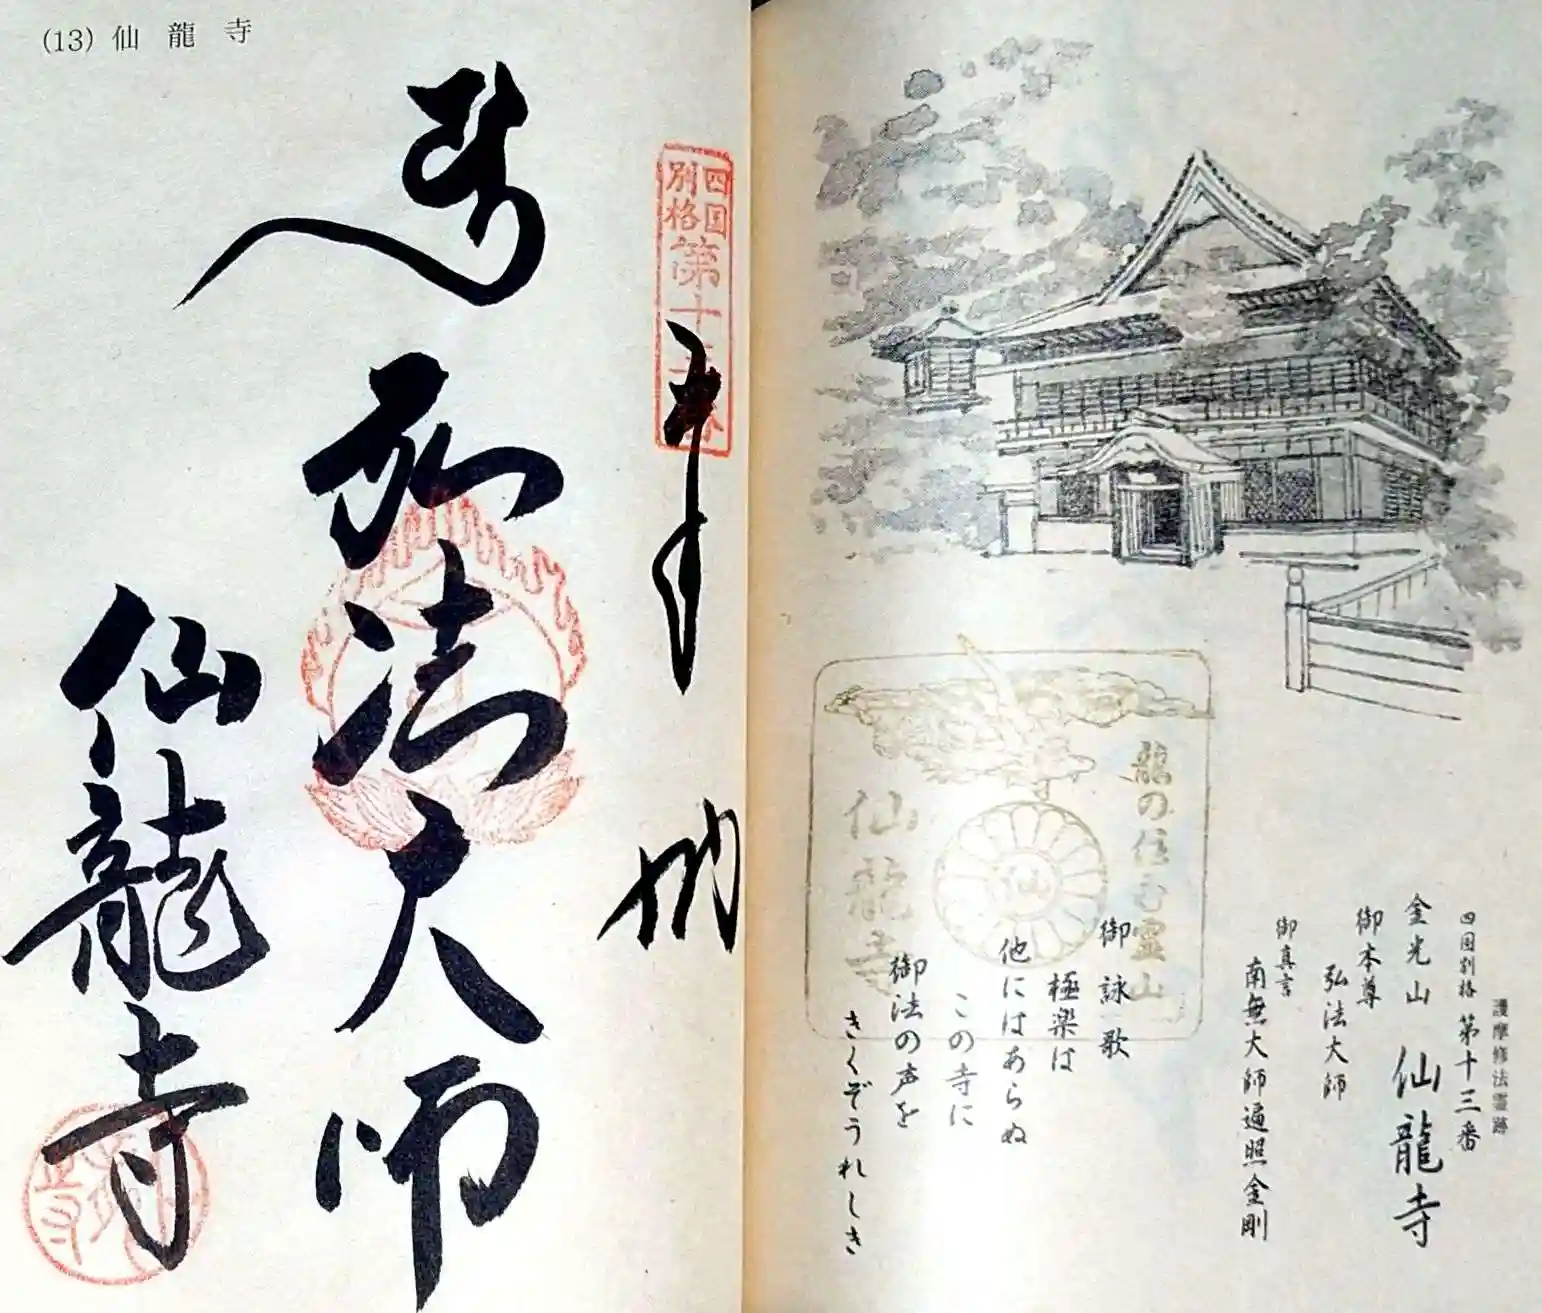 (13) 仙龍寺
四国
別格
第十三番
奉
納
弘法大師
仙龍寺
護摩修法霊跡
四国別格 第十三番
金光山 仙龍寺
御本尊
弘法大師
御真言
南無大師遍照金剛
御詠歌
極楽は
他にはあらぬ
この寺に
御法の声を
きくぞうれしき
龍の住む霊山
仙
仙龍寺